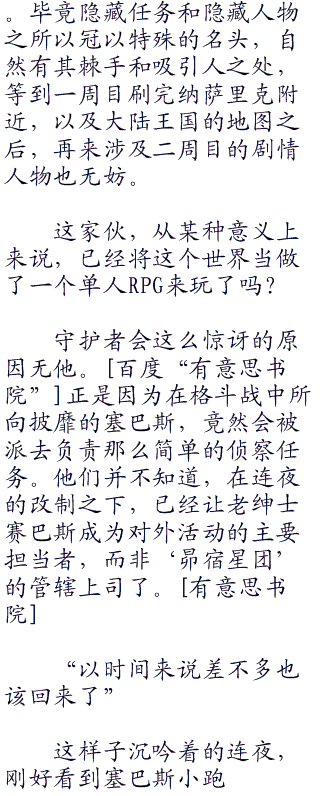 。毕竟隐藏任务和隐藏人物
之所以冠以特殊的名头，自
然有其棘手和吸引人之处，
等到一周目刷完纳萨里克附
近，以及大陆王国的地图之
后，再来涉及二周目的剧情
人物也无妨。
这家伙，从某种意义上
来说，已经将这个世界当做
了一个单人RPG来玩了吗？
守护者会这么惊讶的原
因无他。[百度“有意思书
院”]正是因为在格斗战中所
向披靡的塞巴斯，竟然会被
派去负责那么简单的侦察任
务。他们并不知道，在连夜
的改制之下，已经让老绅士
赛巴斯成为对外活动的主要
担当者，而非‘昴宿星团’
的管辖上司了。[有意思书
院]
“以时间来说差不多也
该回来了”
这样子沉吟着的连夜，
刚好看到塞巴斯小跑